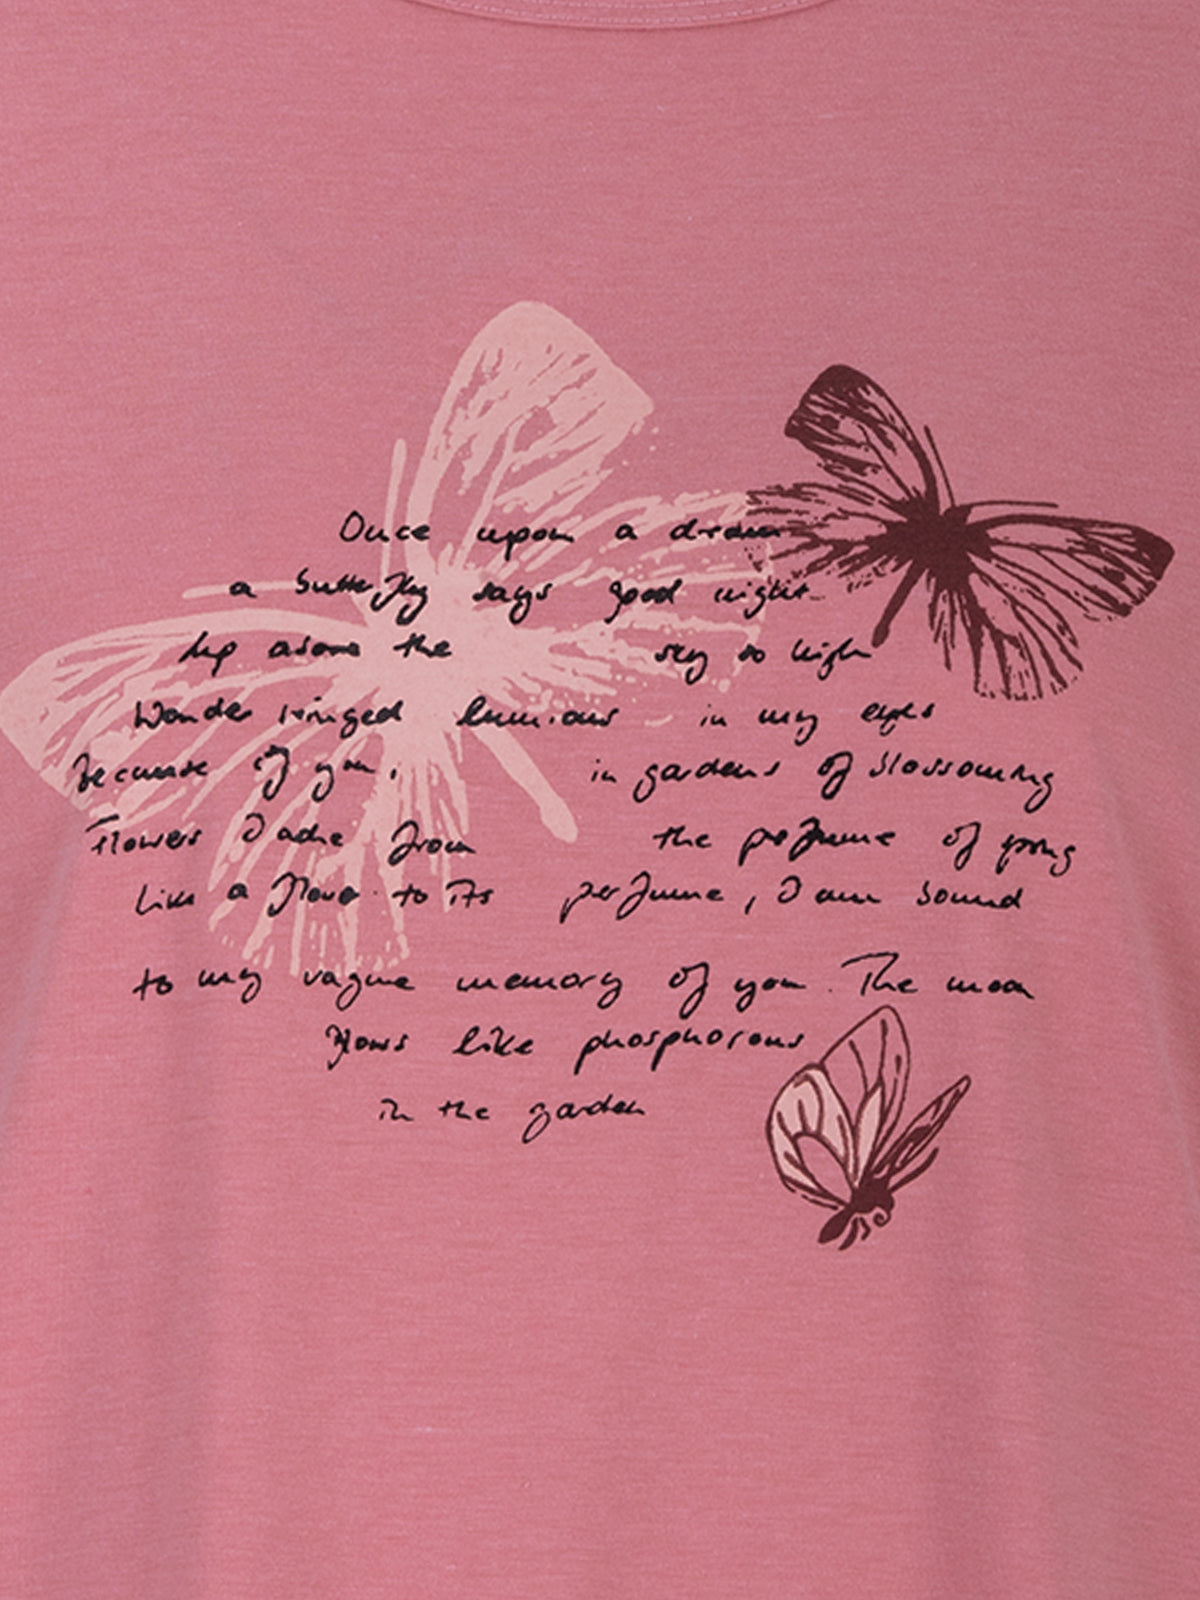 Once upon a dream
a butterfly says good night
Up above the sky so high
Wonder winged luminous in my eyes
Because of you, in gardens of blossoming
Flowers I ache from the perfume of spring
Like a flower to its perfume, I am bound
to my vague memory of you. The moon
glows like phosphorous
in the garden